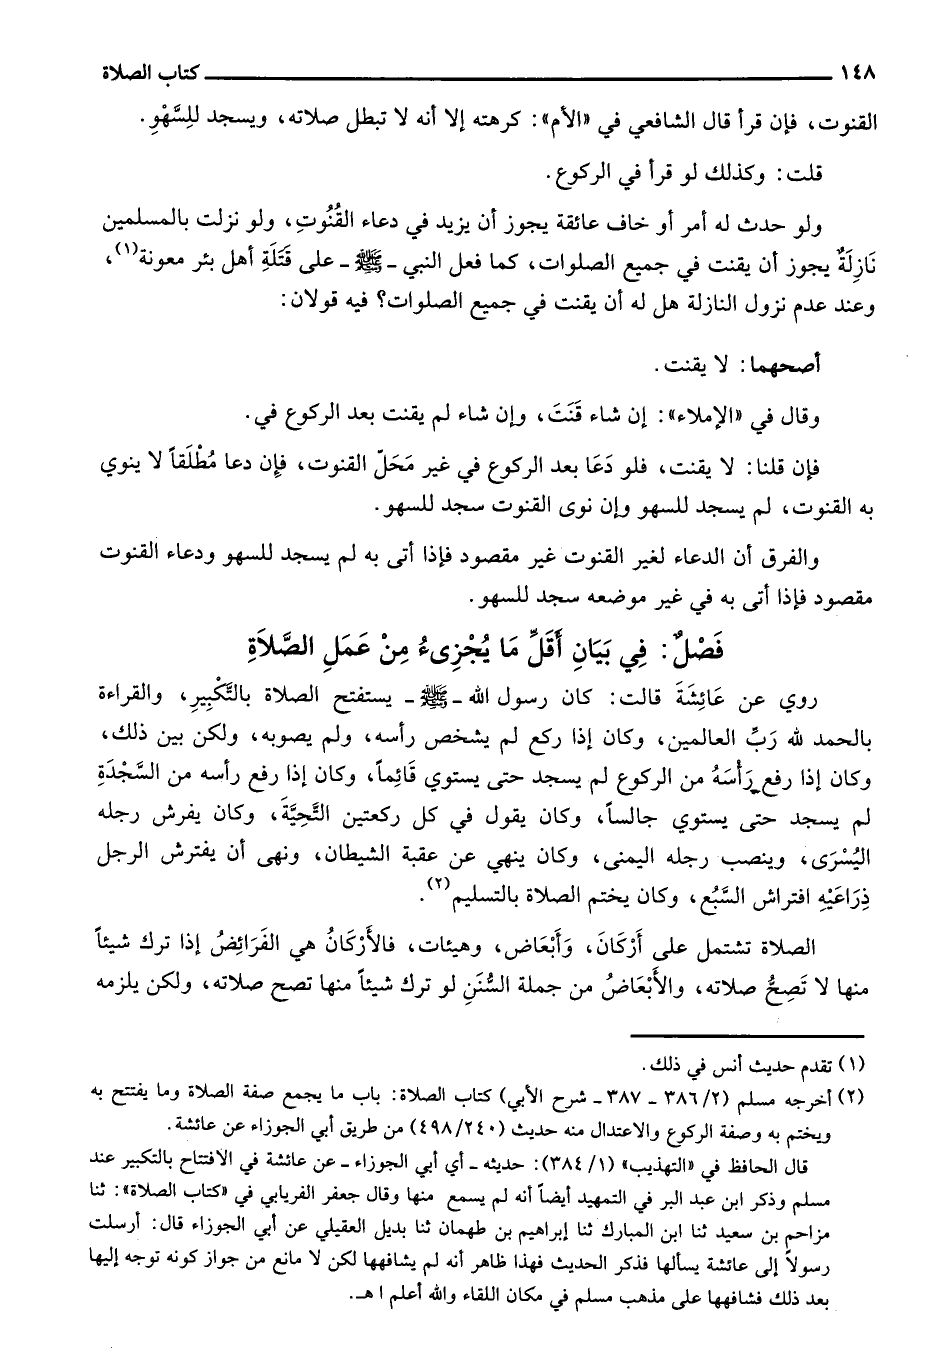 ١٤٨ كتاب الصلاة
القنوت، فإن قرأ قال الشافعي في «الأم»: كرهته إلا أنه لا تبطل صلاته، ويسجد للِسَّهْوِ.
قلت: وكذلك لو قرأ في الركوع.
ولو حدث له أمر أو خاف عائقة يجوز أن يزيد في دعاء القُنُوتِ، ولو نزلت بالمسلمين
نَازِلَةٌ يجوز أن يقنت في جميع الصلوات، كما فعل النبي ـ ﷺ ـ على قَتَلَةِ أهل بئر معونة(١)،
وعند عدم نزول النازلة هل له أن يقنت في جميع الصلوات؟ فيه قولان:
أصحهما: لا يقنت.
وقال في «الإملاء»: إن شاء قَنَتَ، وإن شاء لم يقنت بعد الركوع في.
فإن قلنا: لا يقنت، فلو دَعَا بعد الركوع في غير مَحَلّ القنوت، فإن دعا مُطْلَقاً لا ينوي
به القنوت، لم يسجد للسهو وإن نوى القنوت سجد للسهو.
والفرق أن الدعاء لغير القنوت غير مقصود فإذا أتى به لم يسجد للسهو ودعاء القنوت
مقصود فإذا أتى به في غير موضعه سجد للسهو.
فَصْلٌ: فِي بَيَانِ أَقَلِّ مَا يُجْزِىءُ مِنْ عَمَلِ الصَّلاَةِ
روي عن عَائِشَةَ قالت: كان رسول الله ـ ﷺ ـ يستفتح الصلاة بالتَّكْبِيرِ، والقراءة
بالحمد لله رَبِّ العالمين، وكان إذا ركع لم يشخص رأسه، ولم يصوبه، ولكن بين ذلك،
وكان إذا رفع رَأْسَهُ من الركوع لم يسجد حتى يستوي قَائِماً، وكان إذا رفع رأسه من السَّجْدَةِ
لم يسجد حتى يستوي جالساً، وكان يقول في كل ركعتين التَّحِيَّةَ، وكان يفرش رجله
اليُسْرَى، وينصب رجله اليمنى، وكان ينهي عن عقبة الشيطان، ونهى أن يفترش الرجل
ذِرَاعَيْهِ افتراش السَّبُع، وكان يختم الصلاة بالتسليم(٢).
الصلاة تشتمل على أَرْكَانَ، وَأَبْعَاض، وهيئات، فالأَرْكَانُ هي الفَرَائِضُ إذا ترك شيئاً
منها لا تَصِحُّ صلاته، والأَبْعَاضُ من جملة السُّنَنِ لو ترك شيئاً منها تصح صلاته، ولكن يلزمه
(١) تقدم حديث أنس في ذلك.
(٢) أخرجه مسلم (٢/ ٣٨٦ ـ ٣٨٧ ـ شرح الأبي) كتاب الصلاة: باب ما يجمع صفة الصلاة وما يفتتح به
ويختم به وصفة الركوع والاعتدال منه حديث (٤٩٨/٢٤٠) من طريق أبي الجوزاء عن عائشة.
قال الحافظ في «التهذيب» (١/ ٣٨٤): حديثه ـ أي أبي الجوزاء ـ عن عائشة في الافتتاح بالتكبير عند
مسلم وذكر ابن عبد البر في التمهيد أيضاً أنه لم يسمع منها وقال جعفر الفريابي في «كتاب الصلاة»: ثنا
مزاحم بن سعيد ثنا ابن المبارك ثنا إبراهيم بن طهمان ثنا بديل العقيلي عن أبي الجوزاء قال: أرسلت
رسولاً إلى عائشة يسألها فذكر الحديث فهذا ظاهر أنه لم يشافهها لكن لا مانع من جواز كونه توجه إليها
بعد ذلك فشافهها على مذهب مسلم في مكان اللقاء والله أعلم ا هـ.